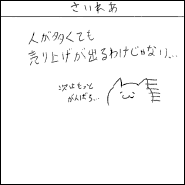 さいれあ
人が多くても
売り上げが出るわけじゃない…
次はもっと
がんばろ…